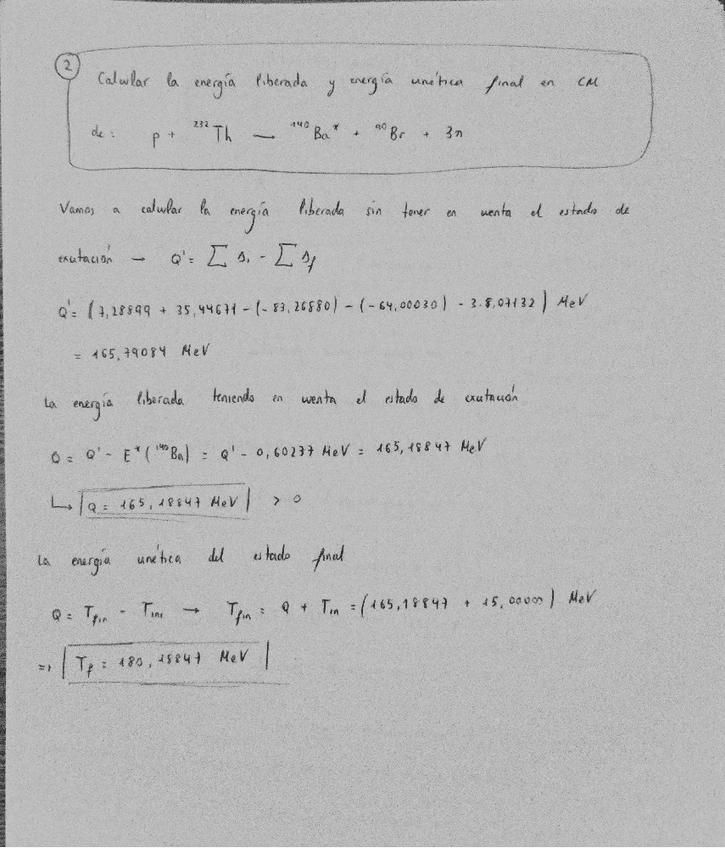 2
Calcular la energía liberada y energía cinética final en CM
de: p + ²³²Th → ¹⁴⁰Ba* + ⁹⁰Br + 3n
Vamos a calcular la energía liberada sin tener en cuenta el estado de
excitación → Q' = Σ Δᵢ - Σ Δ_f
Q' = (7,28899 + 35,44671 - (-83,26880) - (-64,00030) - 3·8,07132) MeV
= 165,79084 MeV
La energía liberada teniendo en cuenta el estado de excitación
Q = Q' - E*(¹⁴⁰Ba) = Q' - 0,60237 MeV = 165,18847 MeV
↳ Q = 165,18847 MeV > 0
La energía cinética del estado final
Q = T_fin - T_ini → T_fin = Q + T_in = (165,18847 + 15,00000) MeV
=> T_f = 180,18847 MeV